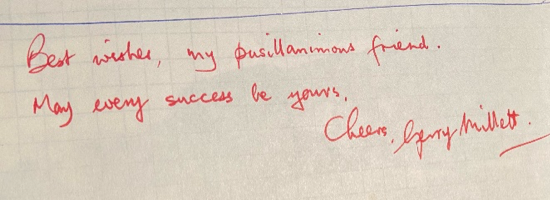 Best wishes, my pusillanimous friend.
May every success be yours.
Cheers, Gerry Millett.